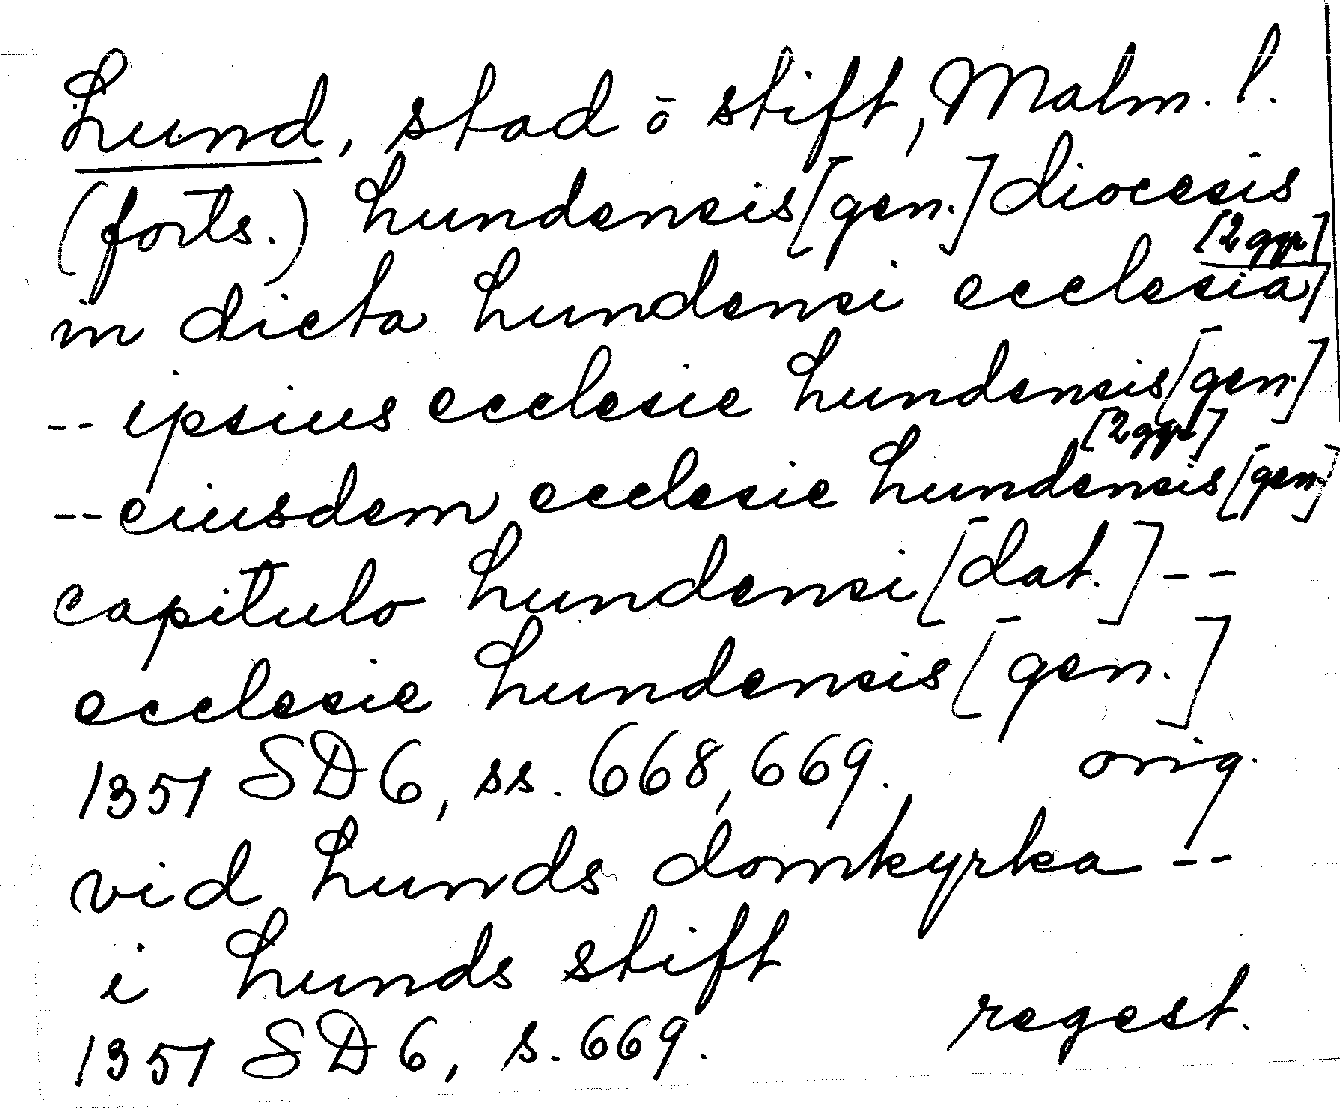 Lund, stad o stift, Malm. l.
(forts.) Lundensis [gen.] diocesis
[2 ggr]
in dicta Lundensi ecclesia
-- ipsius ecclesie Lundensis [gen.]
[2 ggr]
-- eiusdem ecclesie Lundensis [gen.]
capitulo Lundensi [dat.] --
ecclesie Lundensis [gen.]
1351 SD 6, ss. 668, 669. orig.
vid Lunds domkyrka --
i Lunds stift
1351 SD 6, s. 669. regest.